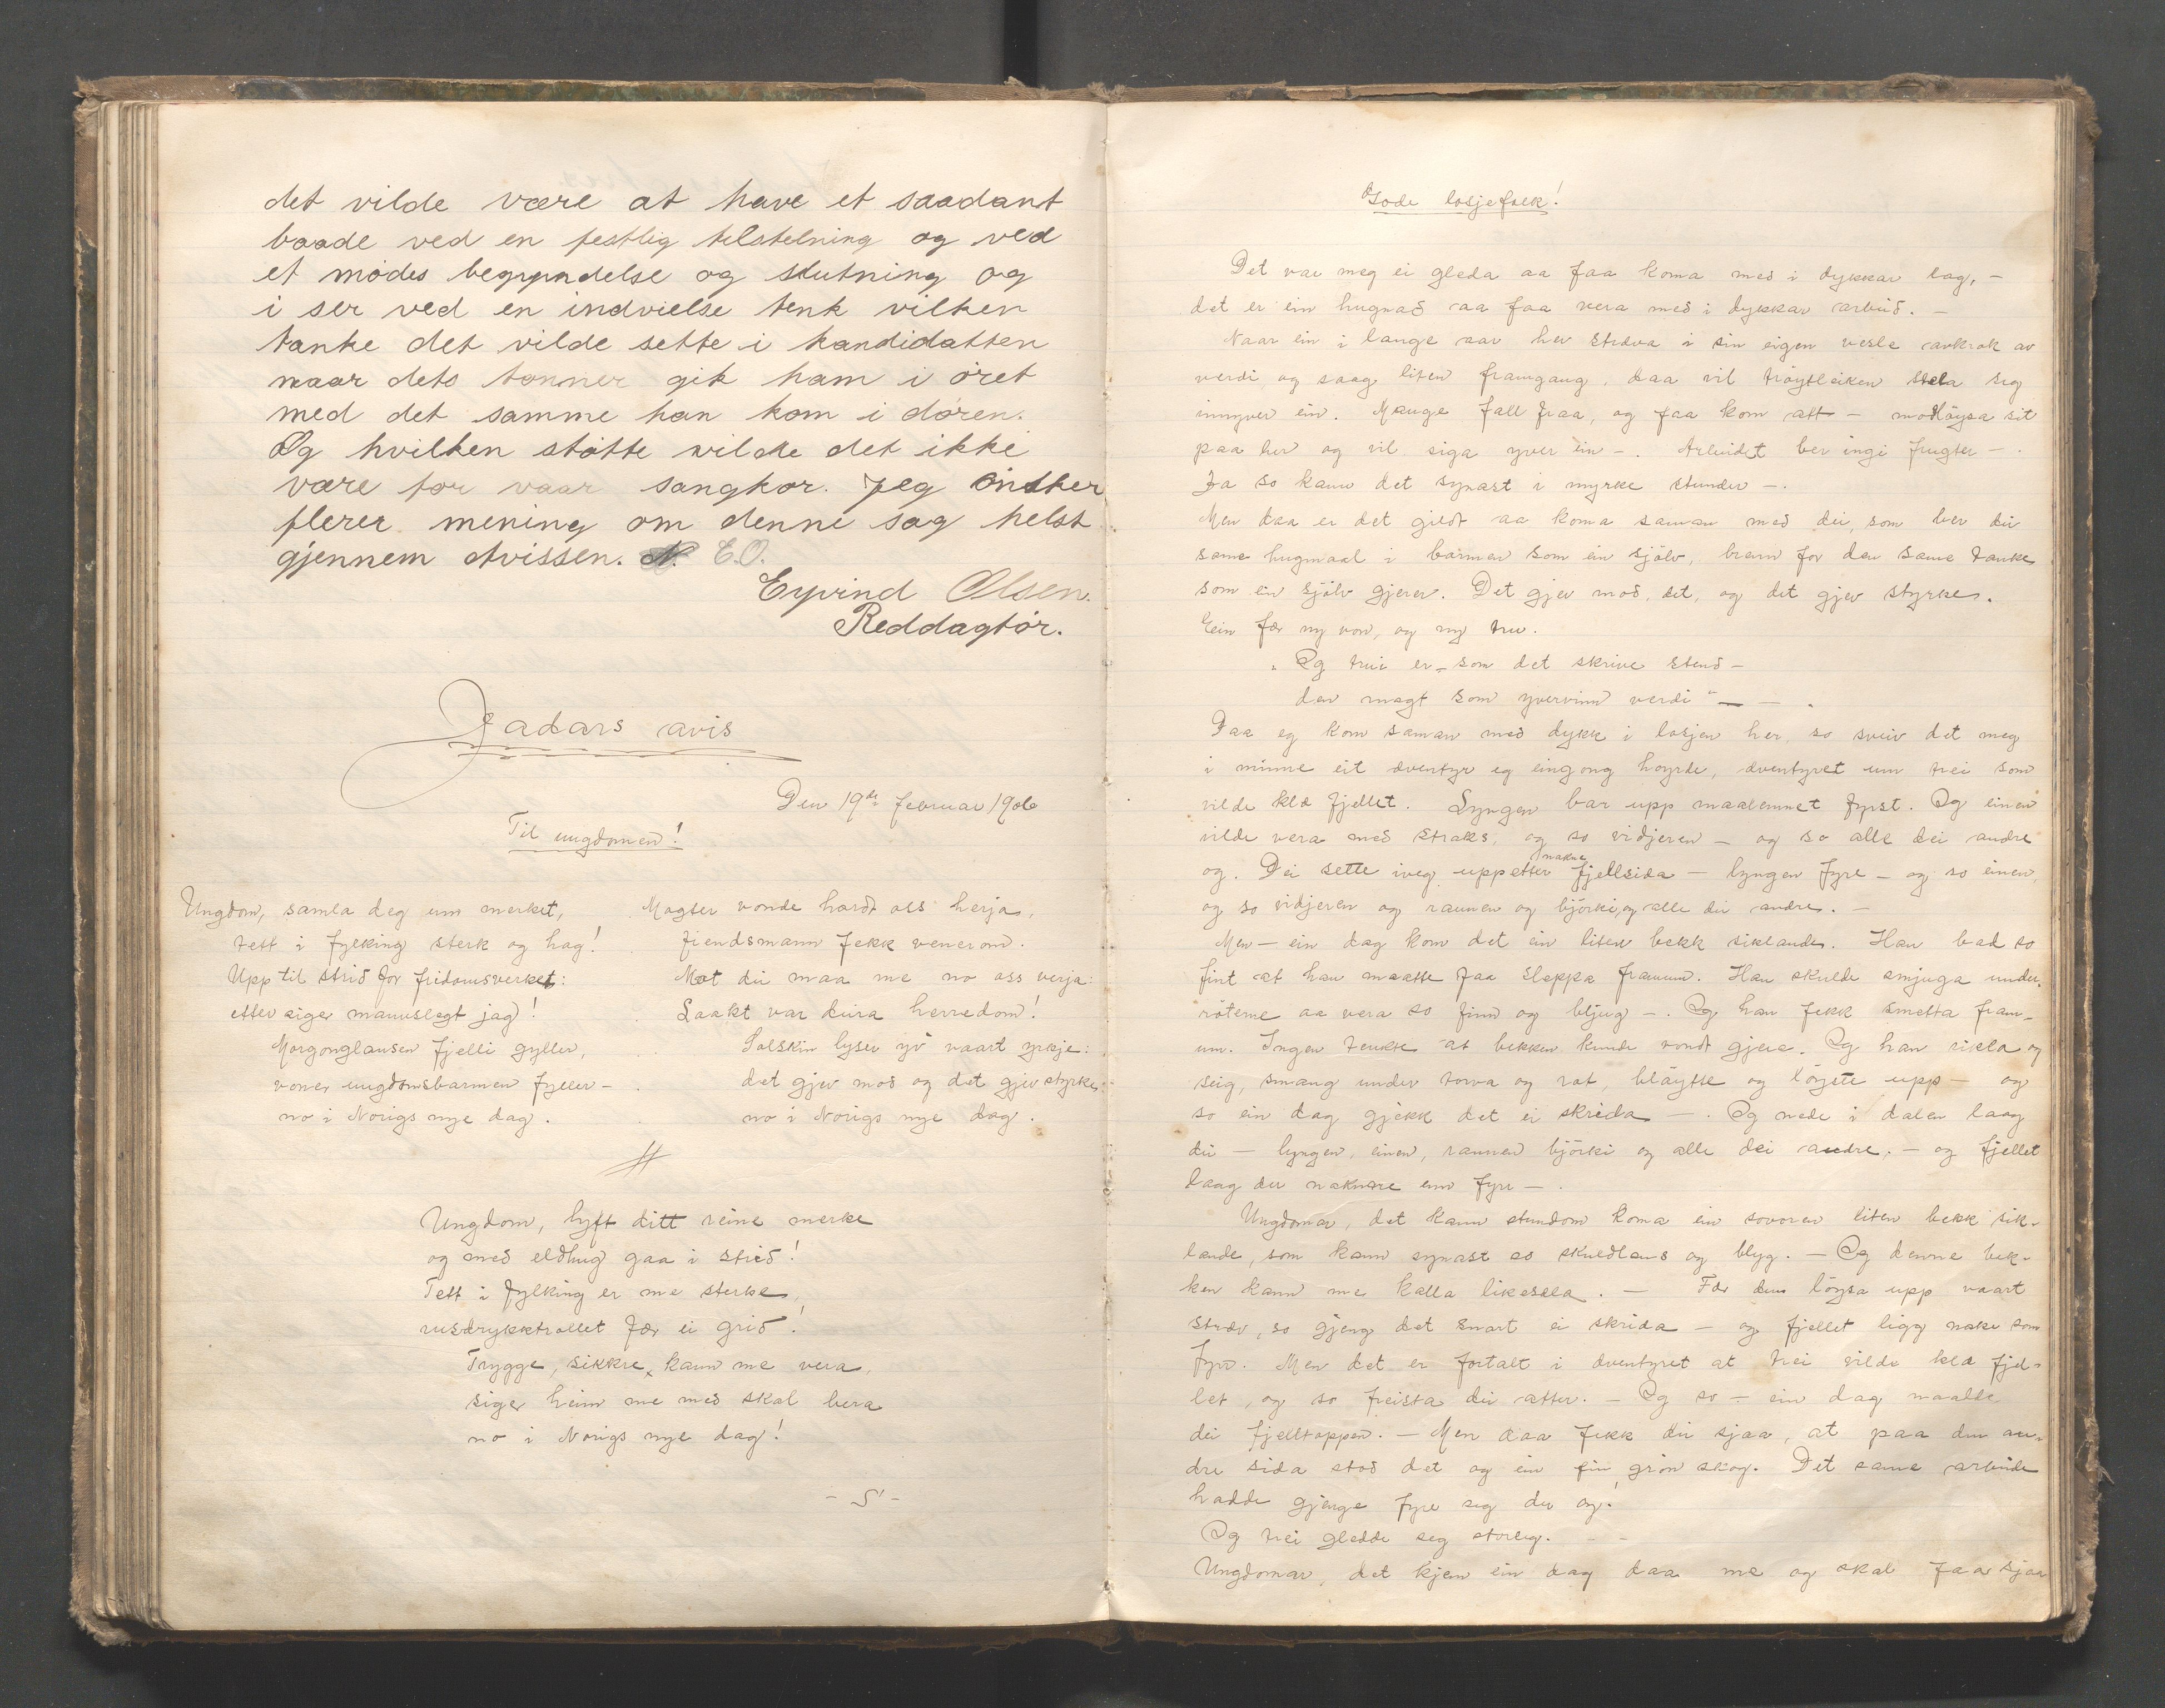 det vilde være at have et saadant
baade ved en festlig tilstelning og ved
et mödes begyndelse og slutning og
i ser ved en indvielse tenk vilken
tanke det vilde sette i kandidatten
naar dets tonner gik ham i öret
med det samme han kom i dören.
Og hvilken stötte vilde det ikke
være for vaar sangkor. Jeg önsker
flerer mening om denne sag helst
gjennem Avissen. E.O.
Eyvind Olsen.
Reddagtör.
Jadars avis
Den 19de februar 1906
Til ungdomen!
Ungdom, samla deg um merket,
tett i fylking sterk og hag!
Upp til strid for fridomsverket:
etter siger mannslegt jag!
Morgonglansen fjelli gyller,
voner ungdomsbarmen fyller –
no i Norigs nye dag.
Magter vonde hardt oss herja,
fiendsmann fekk venerom.
Mot dei maa me no oss verja:
Laakt var deira herredom!
Solskin lyser yv vaart yrkje:
det gjev mod og det gjev styrke
no i Norigs nye dag.
Ungdom, lyft ditt reine merke
og med eldhug gaa i strid!
Tett i fylking er me sterke,
rusdrykktrollet fær ei grid!
Trygge, sikkre, kann me vera,
siger heim me med skal bera
no i Norigs nye dag!
– S' –
Gode losjefolk!
Det var meg ei gleda aa faa koma med i dykkar lag, –
det er ein hugnad aa faa vera med i dykkar arbeid. –
Naar ein i lange aar hev stræva i sin eigen vesle avkrok av
verdi og saag liten framgang, daa vil tröytleiken stela seg
innyver ein. Mange fall fraa, og faa kom att – modlöysa sit
paa lur og vil siga yver ein –. Arbeidet ber ingi frugter –.
Ja so kann det synast i myrke stunder –.
Men daa er det gildt aa koma saman med dei, som ber dei
same hugmaal i barmen som ein sjölv, brenn for den same tanke
som ein sjölv gjerer. Det gjev mod, det, og det gjev styrke.
Ein fær ny von, og ny tru.
„Og trui er – som det skrive stend –
den magt som yvervinn verdi" – – .
Daa eg kom saman med dykk i losjen her, so sveiv det meg
i minne eit æventyr eg eingong hoyrde, æventyret um trei som
vilde klæ fjellet. Lyngen bar upp maalemnet fyrst. Og einen
vilde vera med straks, og so vidjeren – og so alle dei andre
og. Dei sette iveg uppetter nakne fjellsida – lyngen fyre – og so einen,
og so vidjeren og raunen og björki, og alle dei andre. –
Men – ein dag kom det ein liten bekk siklande. Han bad so
fint at han maatte faa sleppa framum. Han skulde smjuga under
röterne aa vera so finn og bljug –. Og han fekk smetta fram-
um. Ingen tenkte at bekken kunde vondt gjera. Og han sikla og
seig, smaug under torva og rot, bläytte og löyste upp – og
so ein dag gjekk det ei skrida –. Og nede i dalen laag
dei – lyngen, einen, raunen björki og alle dei andre. – og fjellet
laag der naknare enn fyre –.
Ungdomar, det kann stundom koma ein sovoren liten bekk sik-
lande, som kann synast so skuldlaus og blyg. – Og denne bek-
ken kann me kalla likesæla. – Fær den löysa upp vaart
stræv, so gjeng det snart ei skrida – og fjellet ligg nake som
fyre. Men det er fortalt i æventyret at trei vilde klæ fjel-
let, og so freista dei atter. – Og so – ein dag naadde
dei fjelltoppen. – Men daa fekk dei sjaa, at paa den an-
dre sida stod det og ein fin grön skog. Det same arbeide
hadde gjenge fyre seg der og!
Og trei gledde seg storleg. – –
Ungdomar, det kjem ein dag daa me og skal faa sjaa